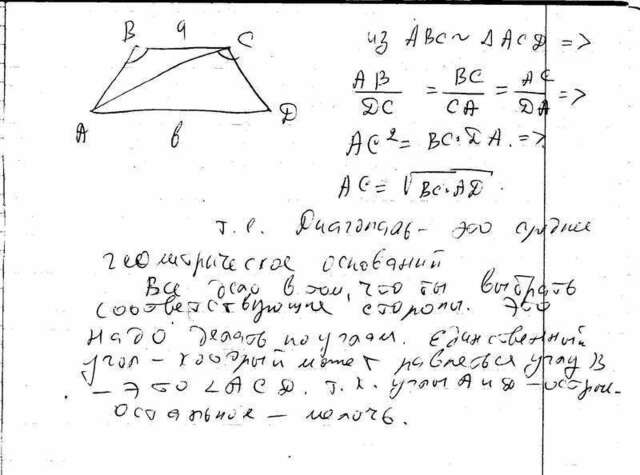 B a C
A в D
из ABC ~ ΔACD =>
AB/DC = BC/CA = AC/DA =>
AC² = BC·DA. =>
AC = √BC·AD.
т.е. Диагональ - это среднее
геометрическое оснований
Все дело в том, что ты выбрать
соответствующие стороны. Это
надо делать по углам. Единственный
угол - который может равняться углу B
- это ∠ACD. т.к. углы A и D - остры.
Остальное - мелочь.